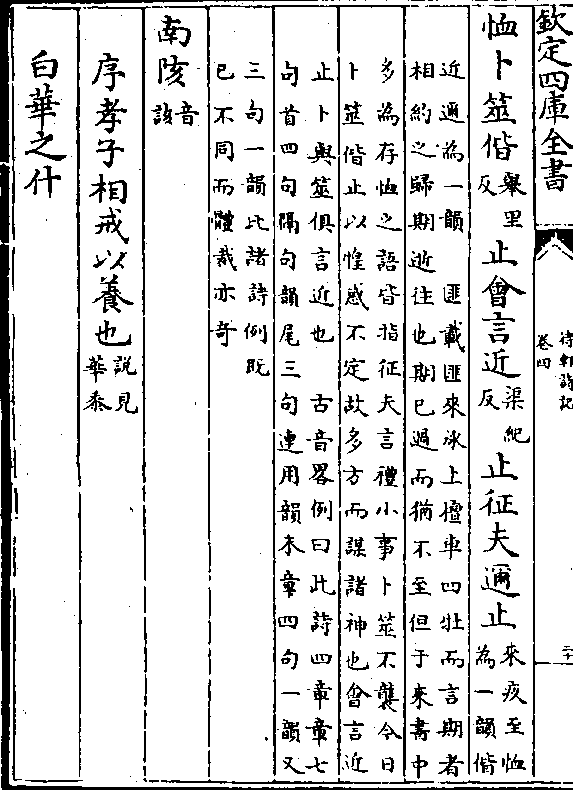 欽定四庫全書
待軒詩記
卷四
恤卜筮偕舉里反止會言近渠紀反止征夫邇止來疚至恤為一韻偕
近邇為一韻　匪載匪來承上檀車四牡而言期者
相約之歸期逝往也期已過而猶不至但于來書中
多為存恤之語皆指征夫言禮小事卜筮不襲今日
卜筮偕止以惶惑不定故多方而謀諸神也會言近
止卜與筮俱言近也　古音畧例曰此詩四章章七
句首四句隔句韻尾三句連用韻末章四句一韻又
三句一韻比諸詩例既
已不同而體裁亦奇
南陔音該
序孝子相戒以養也說見華黍
白華之什